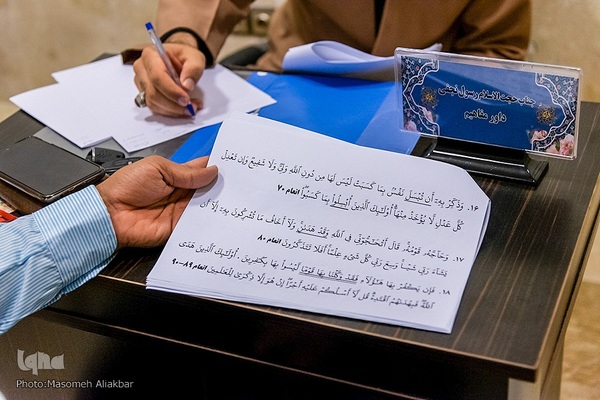 جناب حجت الاسلام رسول نجفی
داور مفاهیم
۱۶. وَذَكِّرْ بِهِۦٓ أَن تُبْسَلَ نَفْسٌ بِمَا كَسَبَتْ لَيْسَ لَهَا مِن دُونِ اللَّهِ وَلِيٌّ وَلَا شَفِيعٌ وَإِن تَعْدِلْ
كُلَّ عَدْلٍ لَّا يُؤْخَذْ مِنْهَآ أُوْلَٰٓئِكَ الَّذِينَ أُبْسِلُواْ بِمَا كَسَبُواْ انعام ۷۰
۱۷. وَحَآجَّهُۥ قَوْمُهُۥ قَالَ أَتُحَٰٓجُّوٓنِّي فِي اللَّهِ وَقَدْ هَدَىٰنِ وَلَآ أَخَافُ مَا تُشْرِكُونَ بِهِۦٓ إِلَّآ أَن
يَشَآءَ رَبِّي شَيْئًا وَسِعَ رَبِّي كُلَّ شَيْءٍ عِلْمًا أَفَلَا تَتَذَكَّرُونَ انعام ۸۰
۱۸. فَإِن يَكْفُرْ بِهَا هَٰٓؤُلَآءِ فَقَدْ وَكَّلْنَا بِهَا قَوْمًا لَّيْسُواْ بِهَا بِكَٰفِرِينَ أُوْلَٰٓئِكَ الَّذِينَ هَدَى
اللَّهُ فَبِهُدَىٰهُمُ اقْتَدِهْ قُل لَّآ أَسْئَلُكُمْ عَلَيْهِ أَجْرًا إِنْ هُوَ إِلَّا ذِكْرَىٰ لِلْعَٰلَمِينَ انعام ۸۹-۹۰
iqna
Photo:Masomeh Aliakbar